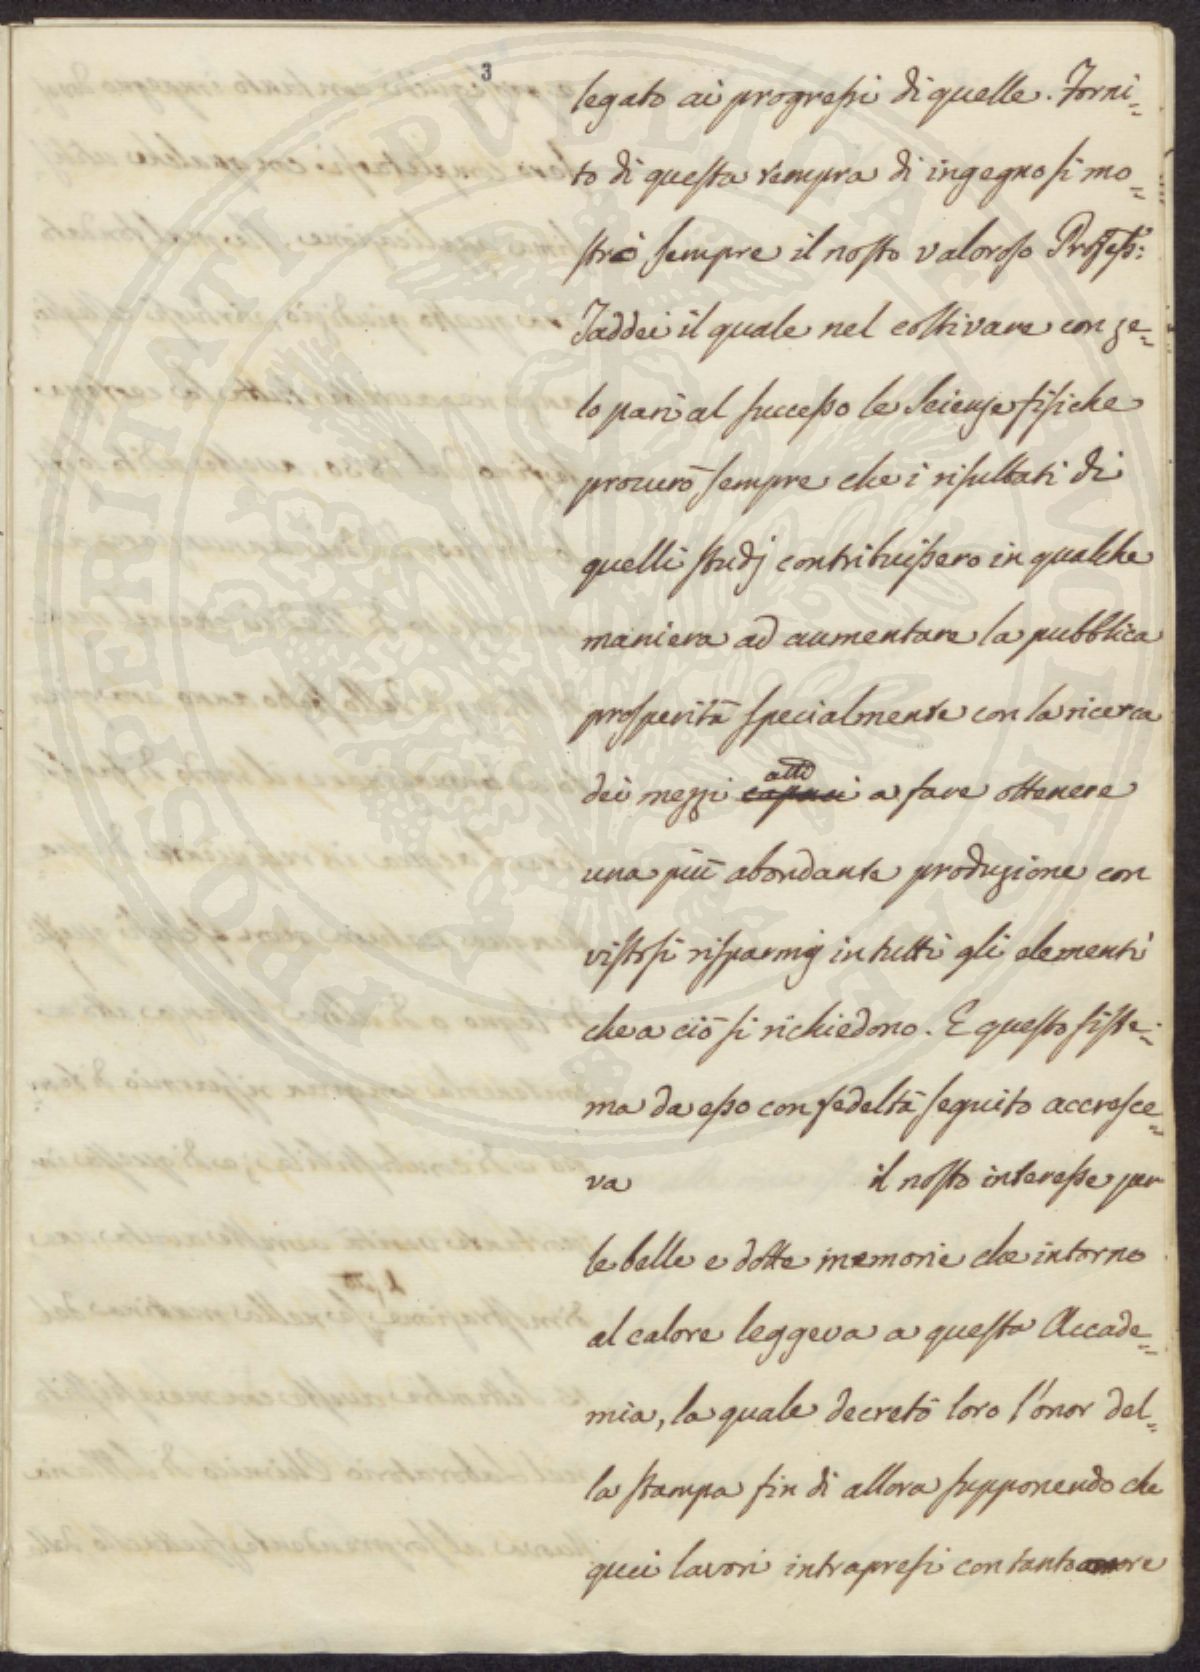 3
legato ai progressi di quelle. Forni=
to di questa tempra di ingegno si mo=
strò sempre il nosto valoroso Profess:
Taddei il quale nel coltivare con ze=
lo pari al successo le Scienze fisiche
procurò sempre che i risultati di
quelli studj contribuissero in qualche
maniera ad aumentare la pubblica
prosperità specialmente con la ricerca
atti
dei mezzi capaci a fare ottenere
una più abondante produzione con
vistosi risparmij in tutti gli elementi
che a ciò si richiedono. E questo siste=
ma da esso con fedeltà seguito accresce=
va il nosto interesse per
le belle e dotte memorie che intorno
al calore leggeva a questa Accade=
mia, la quale decretò loro l'onor del=
la stampa fin di allora supponendo che
quei lavori intrapresi con tanto amore